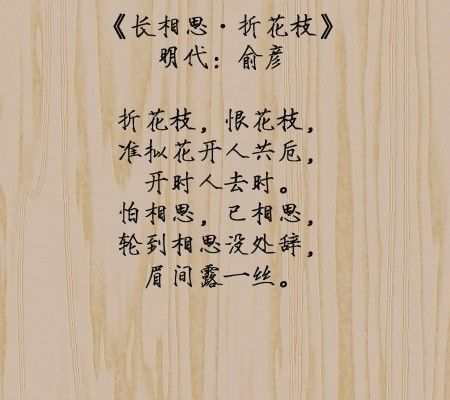 《长相思·折花枝》
明代：俞彦
折花枝，恨花枝，
准拟花开人共卮，
开时人去时。
怕相思，已相思，
轮到相思没处辞，
眉间露一丝。